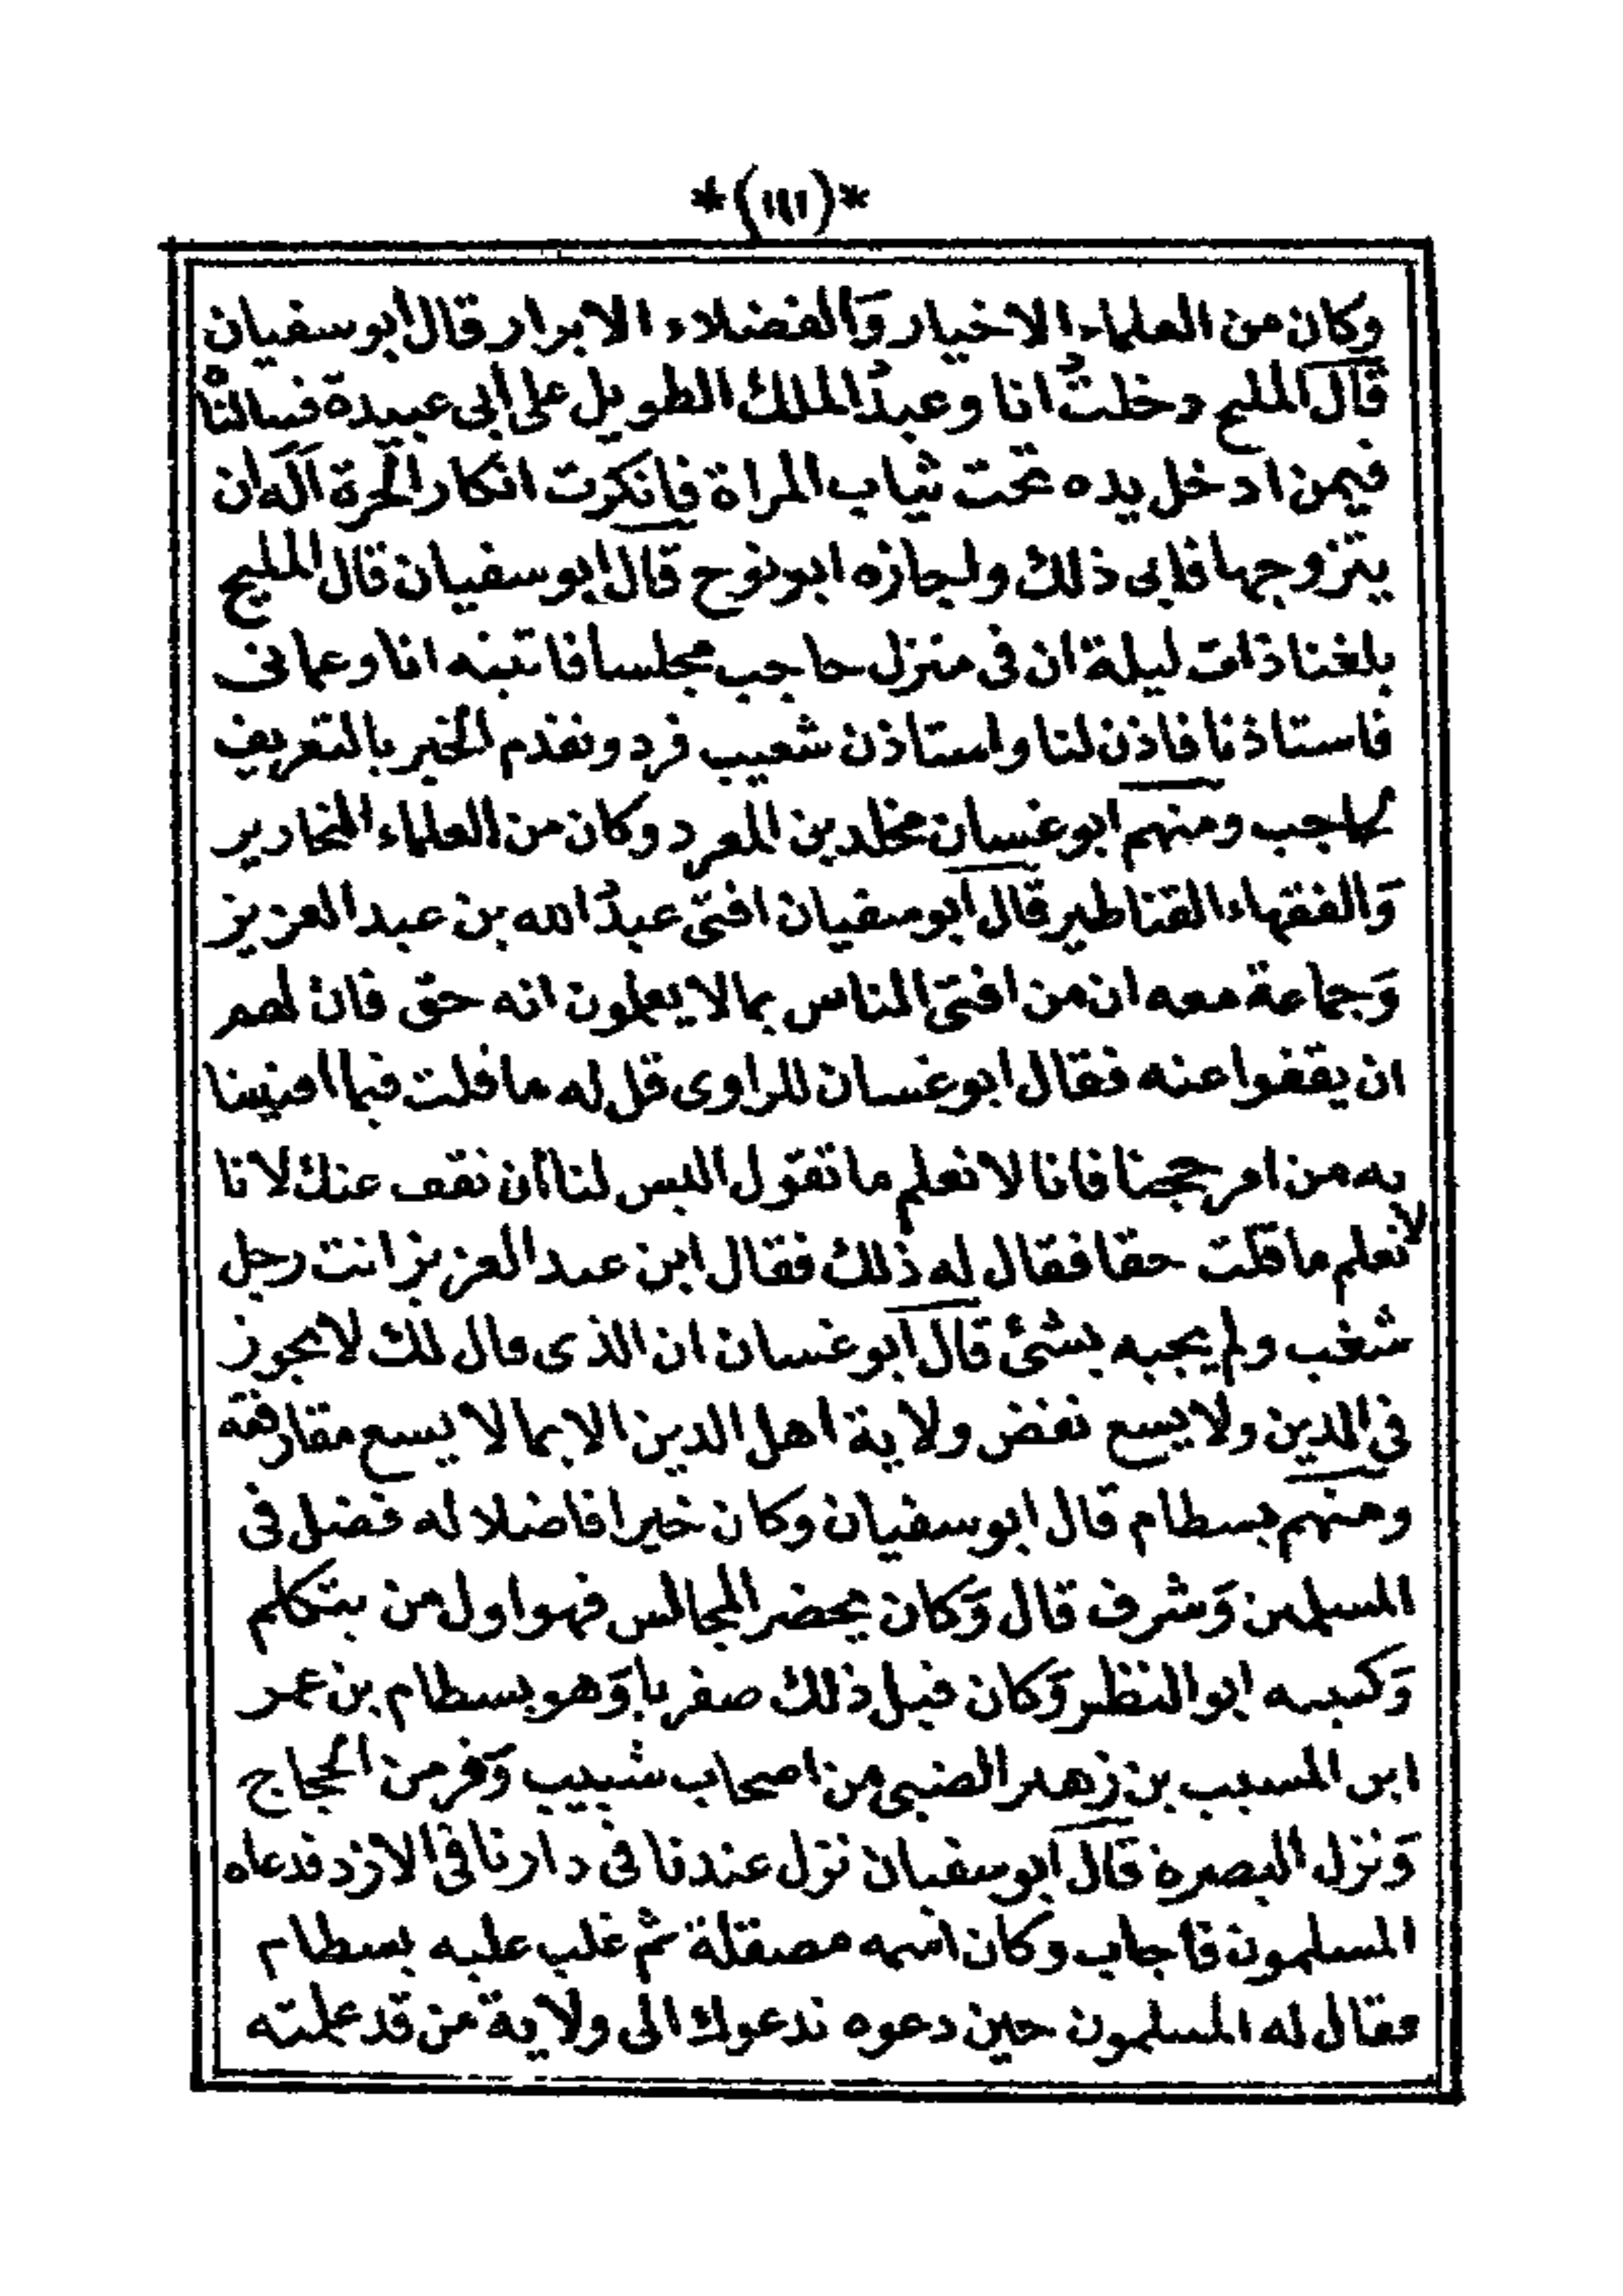 *(١١١)*
وكان من العلماء الاخيار وَالفضلاء الابرار قال ابوسفيان
قال المليح دخلتُ انا وعبدُ الملك الطويل على ابى عبيدة فسالناه
فيمن ادخل يده تحت ثياب المراة فانكرت انكار الحرة اَلَه ان
يتزوجها فابى ذلك ولجازه ابونوح قال ابوسفيان قال المليح
بلغنا ذات ليلة ان فى منزل حاجب مجلسا فاتيته انا وعمانى
فاستاذنا فاذن لنا واستاذن شعيب فرد ونفذم الخبر بالتعريف
بحاجب ومنهم ابوغسان مخلد بن المعرد وكان من العلماء النحارير
وَالفقهاء القناطير قال ابوسفيان افتى عبدُ الله بن عبد العزيز
وَجماعة معه ان من افتى الناس بمالا يعلمون انه حق فان لهم
ان يقفوا عنه فقال ابوغسان للراوى قل له ما قلت فيما افتيتنا
به من امر حججنا فانا لا نعلم ما تقول اليس لنا ان نقف عنك لانا
لا نعلم ما قلت حقا فقال له ذلك فقال ابن عبد العزيز انت رجل
شغب ولم يجبه بشئ قال ابوغسان ان الذى قال لك لا يجوز
فى الدين ولا يسع نغض ولاية اهل الدين الا بما لا يسع مقارفته
ومنهم بسطام قال ابوسفيان وكان خيرا فاضلا له فضل فى
المسلمين وَشرف قال وَكان يحضر المجالس فهو اول من يتكلم
وَكنيته ابوالنظر وَكان قبل ذلك صفريا وَهو بسطام بن عمر
ابن المسيب بن زهير الضبى من اصحاب شبيب وَفر من الحجاج
وَنزل البصرة قال ابوسفيان نزل عندنا فى دارنا فى الازد فدعاه
المسلمون فاجاب وكان اسمه مصقلة ثم غلب عليه بسطام
فقال له المسلمون حين دعوه ندعوك الى ولاية من قد علمته